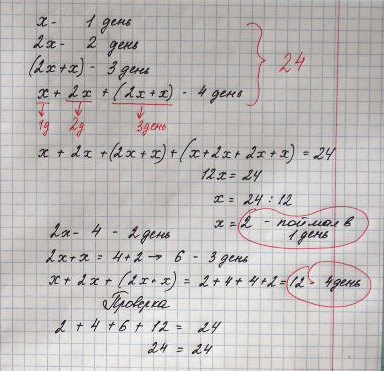 x - 1 день
2x - 2 день
(2x+x) - 3 день
x + 2x + (2x+x) - 4 день
24
1д 2д 3день
x + 2x + (2x+x) + (x+2x+2x+x) = 24
12x = 24
x = 24 : 12
x = 2 - поймал в
1 день
2x - 4 - 2 день
2x+x = 4+2 → 6 - 3 день
x + 2x + (2x+x) = 2+4+4+2 = 12 - 4 день
Проверка
2 + 4 + 6 + 12 = 24
24 = 24